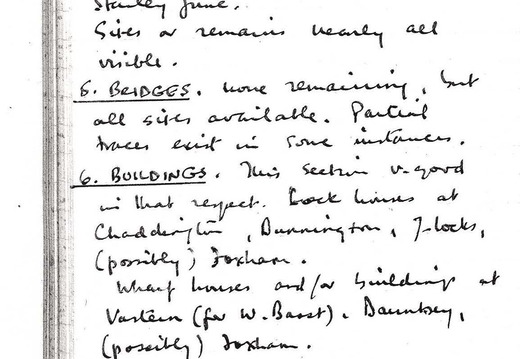 Stanley June.
Sites or remains nearly all
visible.
5. BRIDGES. none remaining, but
all sites available. Partial
traces exist in some instances.
6. BUILDINGS. This section v. good
in that respect. Lock houses at
Chaddington, Dunnington, 7-locks,
(possibly) Foxham.
Wharf houses and/or buildings at
Vastern (for W. Basst). Dauntsey,
(possibly) Foxham.